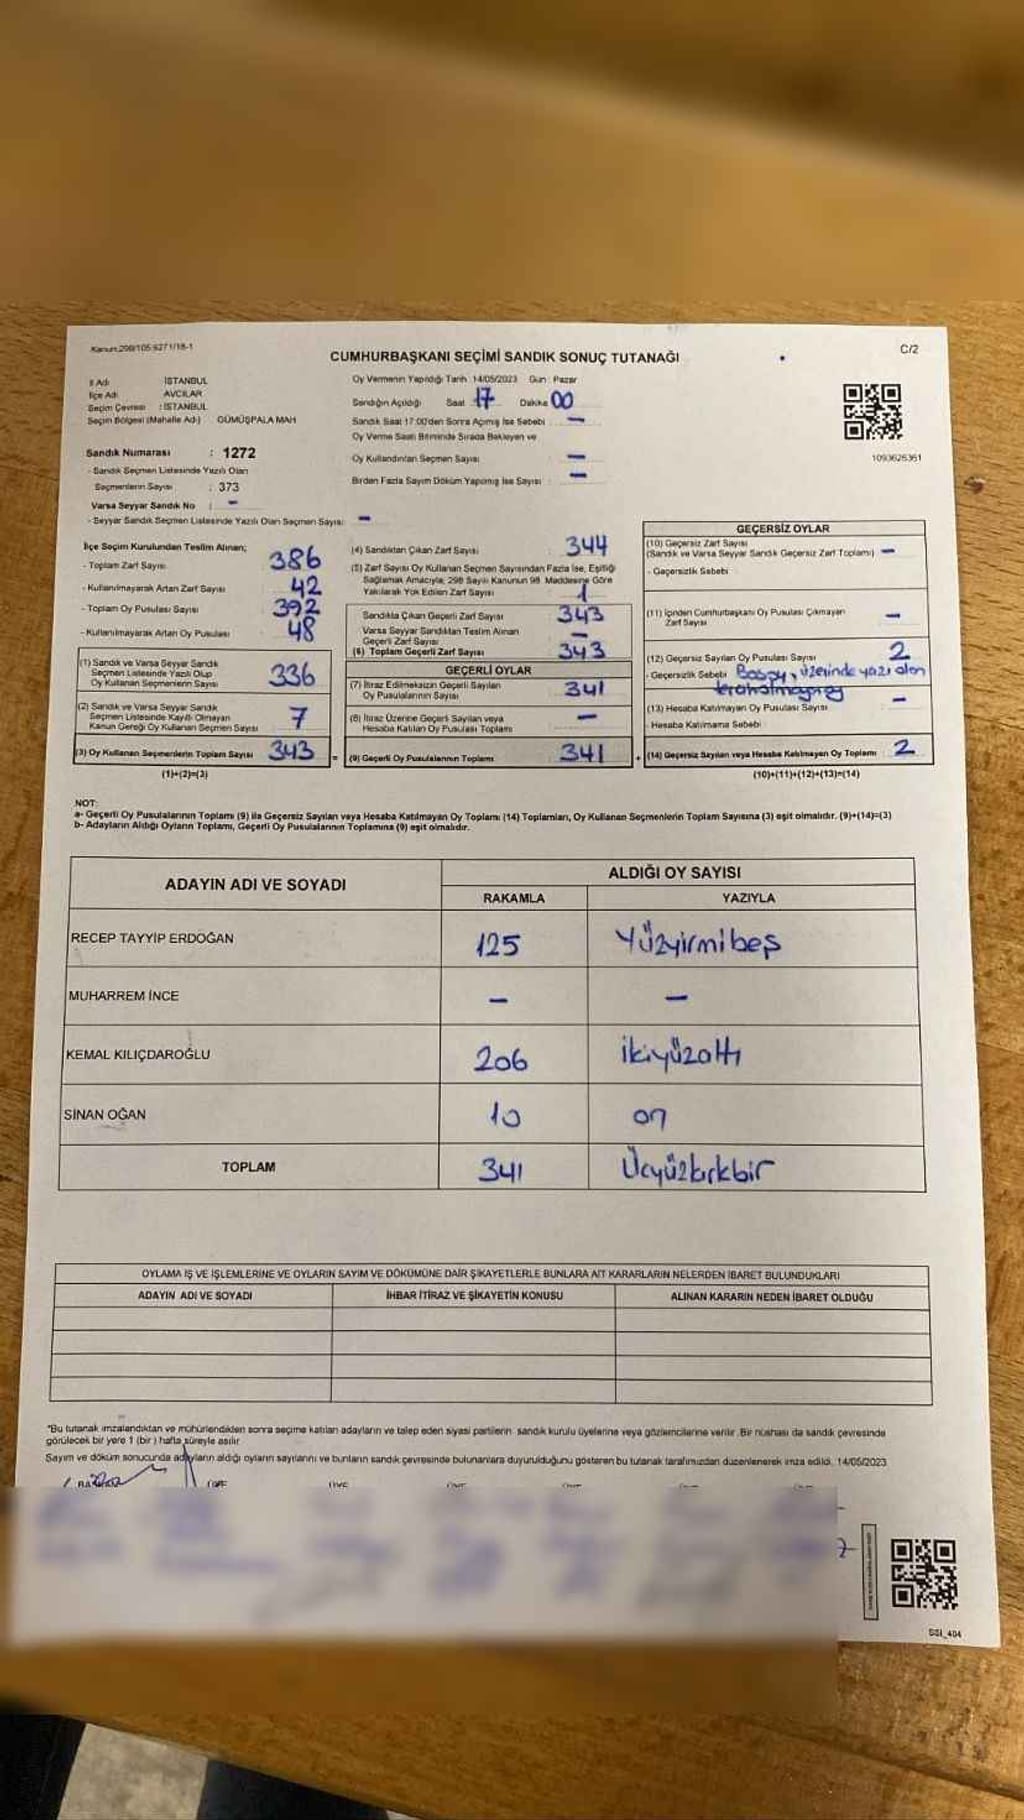 Kanun:298/105:6271/18-1
C/2
CUMHURBAŞKANI SEÇİMİ SANDIK SONUÇ TUTANAĞI
İl Adı İSTANBUL
İlçe Adı AVCILAR
Seçim Çevresi : İSTANBUL
Seçim Bölgesi (Mahalle Adı) GÜMÜŞPALA MAH
Sandık Numarası : 1272
- Sandık Seçmen Listesinde Yazılı Olan
Seçmenlerin Sayısı : 373
Varsa Seyyar Sandık No : -
- Seyyar Sandık Seçmen Listesinde Yazılı Olan Seçmen Sayısı: -
Oy Vermenin Yapıldığı Tarih 14/05/2023 Gün : Pazar
Sandığın Açıldığı Saat 17 Dakika 00
Sandık Saat 17:00'den Sonra Açmış İse Sebebi : -
Oy Verme Saati Bitiminde Sırada Bekleyen ve
Oy Kullandırılan Seçmen Sayısı -
Birden Fazla Sayım Döküm Yapılmış İse Sayısı : -
1093626361
İlçe Seçim Kurulundan Teslim Alınan;
- Toplam Zarf Sayısı 386
- Kullanılmayarak Artan Zarf Sayısı 42
- Toplam Oy Pusulası Sayısı 392
- Kullanılmayarak Artan Oy Pusulası 48
(1) Sandık ve Varsa Seyyar Sandık
Seçmen Listesinde Yazılı Olup
Oy Kullanan Seçmenlerin Sayısı 336
(2) Sandık ve Varsa Seyyar Sandık
Seçmen Listesinde Kayıtlı Olmayan
Kanun Gereği Oy Kullanan Seçmen Sayısı 7
(3) Oy Kullanan Seçmenlerin Toplam Sayısı 343
(1)+(2)=(3)
(4) Sandıktan Çıkan Zarf Sayısı 344
(5) Zarf Sayısı Oy Kullanan Seçmen Sayısından Fazla İse, Eşitliği
Sağlamak Amacıyla; 298 Sayılı Kanunun 98. Maddesine Göre
Yakılarak Yok Edilen Zarf Sayısı 1
Sandıkta Çıkan Geçerli Zarf Sayısı 343
Varsa Seyyar Sandıktan Teslim Alınan
Geçerli Zarf Sayısı -
(6) Toplam Geçerli Zarf Sayısı 343
GEÇERLİ OYLAR
(7) İtiraz Edilmeksizin Geçerli Sayılan
Oy Pusulalarının Sayısı 341
(8) İtiraz Üzerine Geçerli Sayılan veya
Hesaba Katılan Oy Pusulası Toplamı -
= (9) Geçerli Oy Pusulalarının Toplamı 341
GEÇERSİZ OYLAR
(10) Geçersiz Zarf Sayısı
(Sandık ve Varsa Seyyar Sandık Geçersiz Zarf Toplamı) -
- Geçersizlik Sebebi
(11) İçinden Cumhurbaşkanı Oy Pusulası Çıkmayan
Zarf Sayısı -
(12) Geçersiz Sayılan Oy Pusulası Sayısı 2
- Geçersizlik Sebebi üzerinde yazı olan
(13) Hesaba Katılmayan Oy Pusulası Sayısı -
- Hesaba Katılmama Sebebi
+ (14) Geçersiz Sayılan veya Hesaba Katılmayan Oy Toplamı 2
(10)+(11)+(12)+(13)=(14)
NOT:
a- Geçerli Oy Pusulalarının Toplamı (9) ile Geçersiz Sayılan veya Hesaba Katılmayan Oy Toplamı (14) Toplamları, Oy Kullanan Seçmenlerin Toplam Sayısına (3) eşit olmalıdır. (9)+(14)=(3)
b- Adayların Aldığı Oyların Toplamı, Geçerli Oy Pusulalarının Toplamına (9) eşit olmalıdır.
ADAYIN ADI VE SOYADI
ALDIĞI OY SAYISI
RAKAMLA YAZIYLA
RECEP TAYYİP ERDOĞAN 125 Yüzyirmibeş
MUHARREM İNCE - -
KEMAL KILIÇDAROĞLU 206 İkiyüzaltı
SİNAN OĞAN 10 on
TOPLAM 341 Üçyüzkırkbir
OYLAMA İŞ VE İŞLEMLERİNE VE OYLARIN SAYIM VE DÖKÜMÜNE DAİR ŞİKAYETLERLE BUNLARA AİT KARARLARIN NELERDEN İBARET BULUNDUKLARI
ADAYIN ADI VE SOYADI İHBAR İTİRAZ VE ŞİKAYETİN KONUSU ALINAN KARARIN NEDEN İBARET OLDUĞU
*Bu tutanak imzalandıktan ve mühürlendikten sonra seçime katılan adayların ve talep eden siyasi partilerin sandık kurulu üyelerine veya gözlemcilerine verilir. Bir nüshası da sandık çevresinde
görülecek bir yere 1 (bir) hafta süreyle asılır
Sayım ve döküm sonucunda adayların aldığı oyların sayılarını ve bunların sandık çevresinde bulunanlara duyurulduğunu gösteren bu tutanak tarafımızdan düzenlenerek imza edildi. 14/05/2023
SSI_404